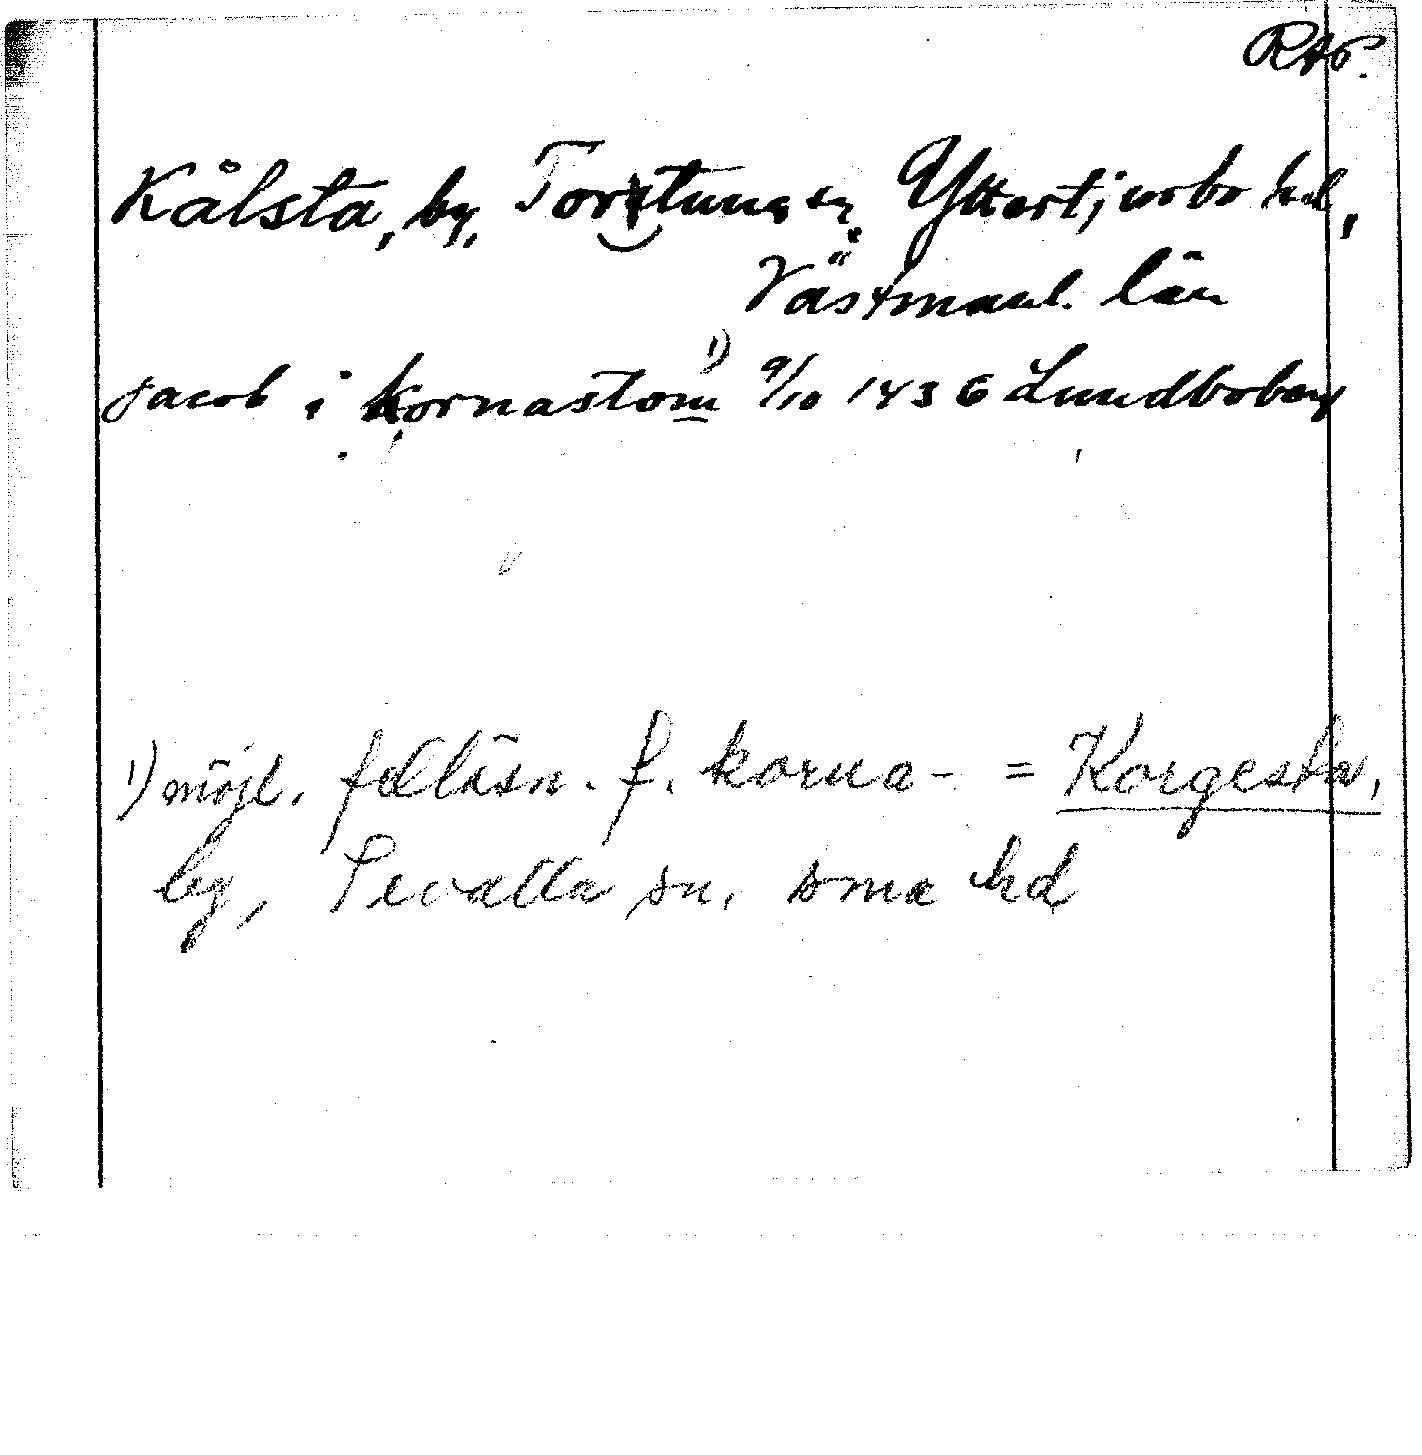 RAP.
Kålsta, by, Tortuna sn Yttertjurbo hd,
Västmanl. län
Jacob i kornastom ¹⁾ 9/10 1436 Lundboberg
1) möjl. felläsn. f. korua- = Korgesta,
by, Tevalla sn, sma hd